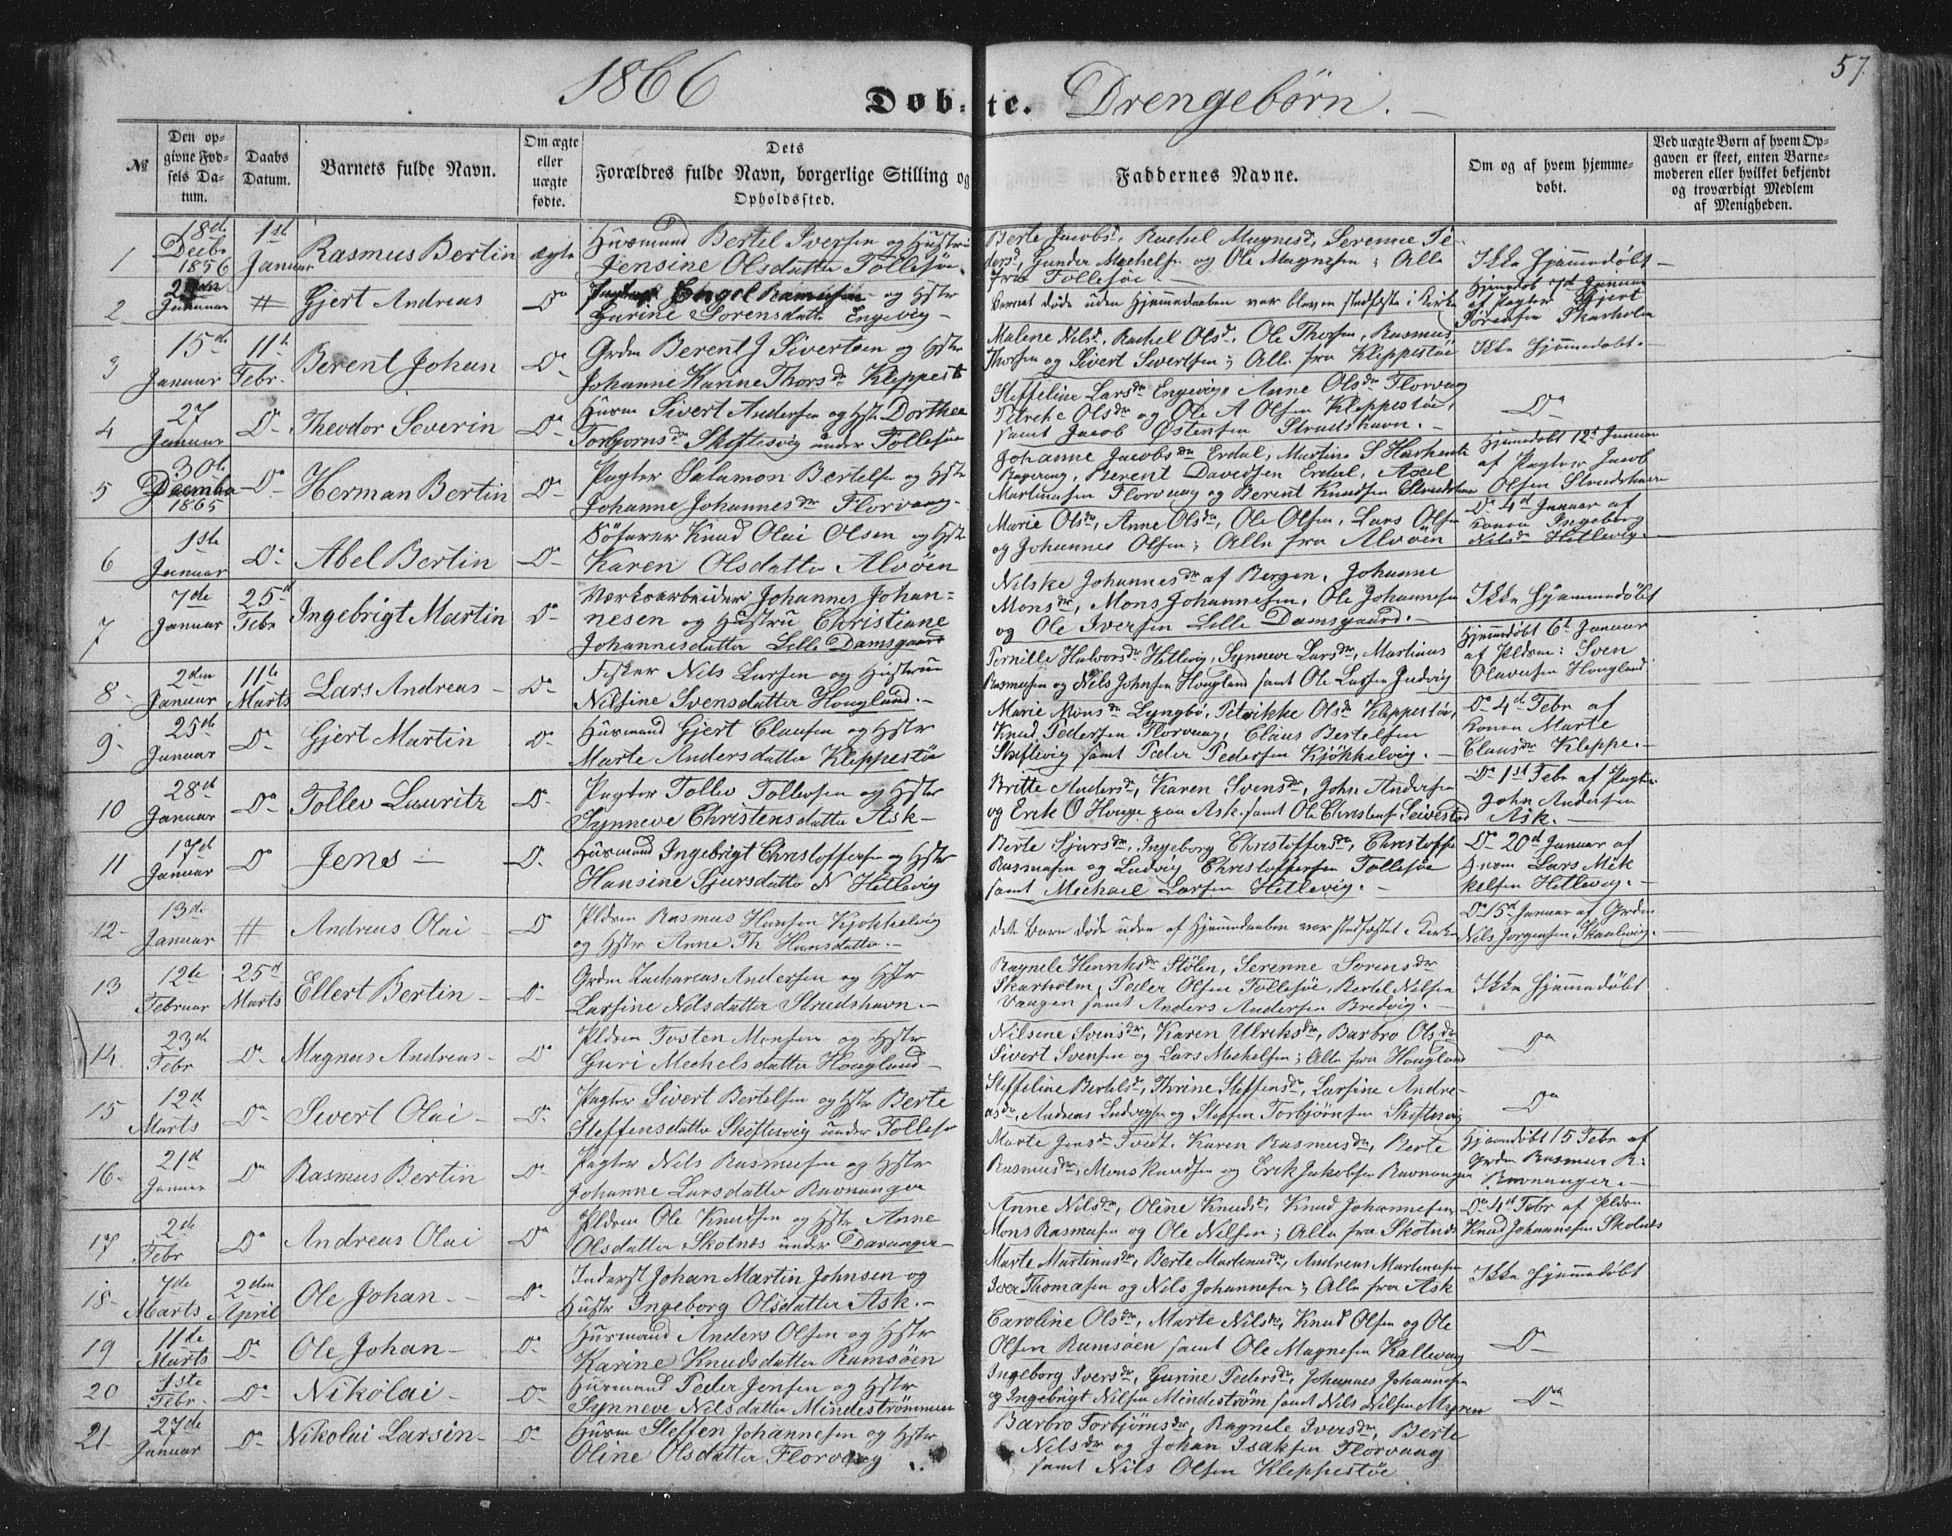 1866
57
Döb-te. Drengebørn.
№
Den opgivne Fødsels Datum.
Daabs Datum.
Barnets fulde Navn.
Om ægte eller uægte fødte.
Dets Forældres fulde Navn, borgerlige Stilling og Opholdssted.
Faddernes Navne.
Om og af hvem hjemmedøbt.
Ved uægte Børn af hvem Opgaven er skeet, enten Barnemoderen eller hvilket bekjendt og troværdigt Medlem af Menigheden.
1
18de Decbr 1856
1st Januar
Rasmus Bertin
ægte
Husmand Bertel Iversen og Hustru
Jensine Olsdatter Follesøe
Berte Jacobsd, Rachel Magnesd, Serenne Pe-
dersd, Gunder Mechelsen og Ole Magnesen; Alle
fra Follesøe
Ikke Hjemmedøbt
2
Januar
#
Gjert Andreas
Do
Engel Rasmussen og Hstr
Gurine Sørensdatter Engevig
Barnet døde uden Hjemmedaaben var bleven stadfæstet i Kirke
af Pagter Gjert
Sørensen Skarholm
3
15de Januar
11te Febr.
Berent Johan
Do
Grdm Berent J Sivertsen og Hstr
Johanne Karine Thorsdr Kleppest
Malene Nilsd, Rachel Olsd, Ole Thorsen, Rasmus
Thorsen og Sivert Sivertsen; Alle fra Kleppestøe
Ikke Hjemmedøbt.
4
27 Januar
Do
Theodor Severin
Do
Husm Sivert Andersen og Hstr Dorthea
Torbjørnsdr Skiftesvig under Follesøe
Steffeline Larsdr Engevig, Anne Olsdr Florvaag
Petrike Olsdr og Ole A Olsen Kleppestøe,
samt Jacob Østensen Strudshavn.
Do
5
30te Decmbr 1865
Do
Herman Bertin
Do
Pagter Salamon Bertelsen og Hstr
Johanne Johannesdr Florvaag
Johanne Jacobsdr Erdal, Martine S
Berent Davidsen Erdal, Axel
Martinusen Florvaag og Berent Knudsen Strudshavn
Hjemmedøbt 12t Januar
af Pagter Jacob
Olsen Strudshavn
6
1ste Januar
Do
Abel Bertin
Do
Søfarer Knud Olai Olsen og Hstr
Karen Olsdatter Alvøen
Marie Olsdr, Anne Olsdr, Ole Olsen, Lars Olsen
og Johannes Olsen; Alle fra Alvøen
Do 4d Januar af
Konen Ingeborg
Nilsdr Hetlevig
7
7de Januar
25d Febr
Ingebrigt Martin
Do
Værksarbeider Johannes Johan-
nesen og Hustru Christiane
Johannesdatter Lille Damsgaard
Nilske Johannesdr af Bergen, Johanne
Monsdr, Mons Johannesen, Ole Johannesen
og Ole Iversen Lille Damsgaard.
Ikke Hjemmedøbt
8
2den Januar
11te Marts
Lars Andreas
Do
Fisker Nils Larsen og Hustrue
Nilsine Svensdatter Hougland.
Pernille Halvorsdr Hetlevig, Synneve Larsdr, Martinus
Rasmusen og Nils Johnsen Hougland samt Ole Larsen Judvig
Hjemmedøbt 6t Januar
af Pldsm: Sven
Olavesen Hougland
9
25de Januar
Do
Gjert Martin
Do
Husmand Gjert Clausen og Hstr
Marte Andersdatter Kleppestøe
Marie Monsdr Lyngbø, Petrikke Olsdr Kleppestøe,
Knud Pedersen Florvaag, Elias Bertelsen
Skiftevig samt Peder Pedersen Kjøkkelvig.
Do 4d Febr af
Konen Marte
Clausdr Kleppe.
10
28de Januar
Do
Tollev Lauritz
Do
Pagter Tollev Tollevsen og Hstr
Synneve Christensdatter Ask
Britte Andersdr, Karen Svensdr, John Andersen
og Erik O Houge paa Ask samt Ole Christensen Seivested
Do 1st Febr af Pagter
John Andersen
Ask.
11
17d Januar
Do
Jens
Do
Husmand Ingebrigt Christoffersen og Hstr
Hansine Sjursdatter N Hetlevig
Berte Sjursdr, Ingeborg Christoffersdr, Christoffer
Rasmusen og Ludvig Christoffersen Follesøe
samt Mechael Larsen Hetlevig.
Do 20d Januar af
Lars Mek
kelsen Hetlevig.
12
13de Januar
#
Andreas Olai
Do
Pldsm Rasmus Hansen Kjøkkelvig
og Hstr Anne Th Hansdatter.
Det Barn døde uden af Hjemmedaaben var stadfæstet i Kirke
Do 15d Januar af Grdm
Nils Jørgensen Skaalevig.
13
12te Februar
25de Marts
Ellert Bertin
Do
Grdm Zacharias Andersen og Hstr
Larsine Nilsdatter Strudshavn.
Ragnele Henriksdr Stølen, Serenne Sørensdr
Skarholm, Peder Olsen Follesøe, Bertel Nilsen
Vaagen samt Anders Andersen Bredvig.
Ikke Hjemmedøbt
14
23de Febr
Do
Magnus Andreas
Do
Pldsm Tosten Monsen og Hstr
Guri Mechelsdatter Hougland
Nilsine Svensdr, Karen Ulriksdr, Barbro Olsdr
Sivert Svensen og Lars Mechelsen; Alle fra Hougland
Do
15
12d Marts
Do
Sivert Olai
Do
Pagter Sivert Bertelsen og Hstr Berte
Steffensdatter Skiftesvig under Follesø
Steffeline Bertelsdr, Thrine Steffensdr, Larsine Andre-
asdr, Andreas Ludvigsen og Steffen Torbjørnsen Skiftesvig
Do
16
21d Januar
Do
Rasmus Bertin
Do
Pagter Nils Rasmusen og Hstr
Johanne Larsdatter Ravnanger
Marte Jensdr Tvedt, Karen Rasmusdr, Berte
Rasmusdr, Mons Knudsen og Erik Jakobsen Ravnanger
Hjemmedøbt 15 Febr af
Grdm Rasmus R.
Ravnanger.
17
2d Febr
Do
Andreas Olai
Do
Pldsm Ole Knudsen og Hstr Anne
Olsdatter Skotnes under Davanger
Anne Nilsdr, Oline Knudsdr, Knud Johannesen
Mons Rasmusen og Ole Nilsen; Alle fra Skotnes
Do 4d Febr af Pldsm
Knud Johannesen Skotnes
18
7de Marts
2den April
Ole Johan
Do
Inderst Johan Martin Johnsen og
Hustr Ingeborg Olsdatter Ask.
Marte Martinusdr, Berte Martinusdr, Andreas Martinusen
Iver Thomasen og Nils Johannesen; Alle fra Ask
Ikke Hjemmedøbt
19
11te Marts
Do
Ole Johan
Do
Husmand Anders Olsen og Hstr
Karine Knudsdatter Ramsøen
Caroline Olsdr, Marte Nilsdr, Knud Olsen og Ole
Olsen Ramsøen samt Ole Magnesen Kallevaag
Do
20
1ste Febr.
Do
Nikolai
Do
Husmand Peder Jensen og Hstr
Synneve Nilsdatter Mindestrømmen
Ingeborg Iversdr, Gurine Pedersdr, Johannes Johannesen
og Ingebrigt Nilsen Mindestrøm samt Nils Nilsen Myren
Do
21
27de Januar
Do
Nikolai Larsin
Do
Husm Steffen Johannesen og Hstr
Oline Olsdatter Florvaag
Barbro Torbjørnsdr, Ragnele Iversdr, Berte
Nilsdr og Johan Isaksen Florvaag
samt Nils Olsen Kleppestøe